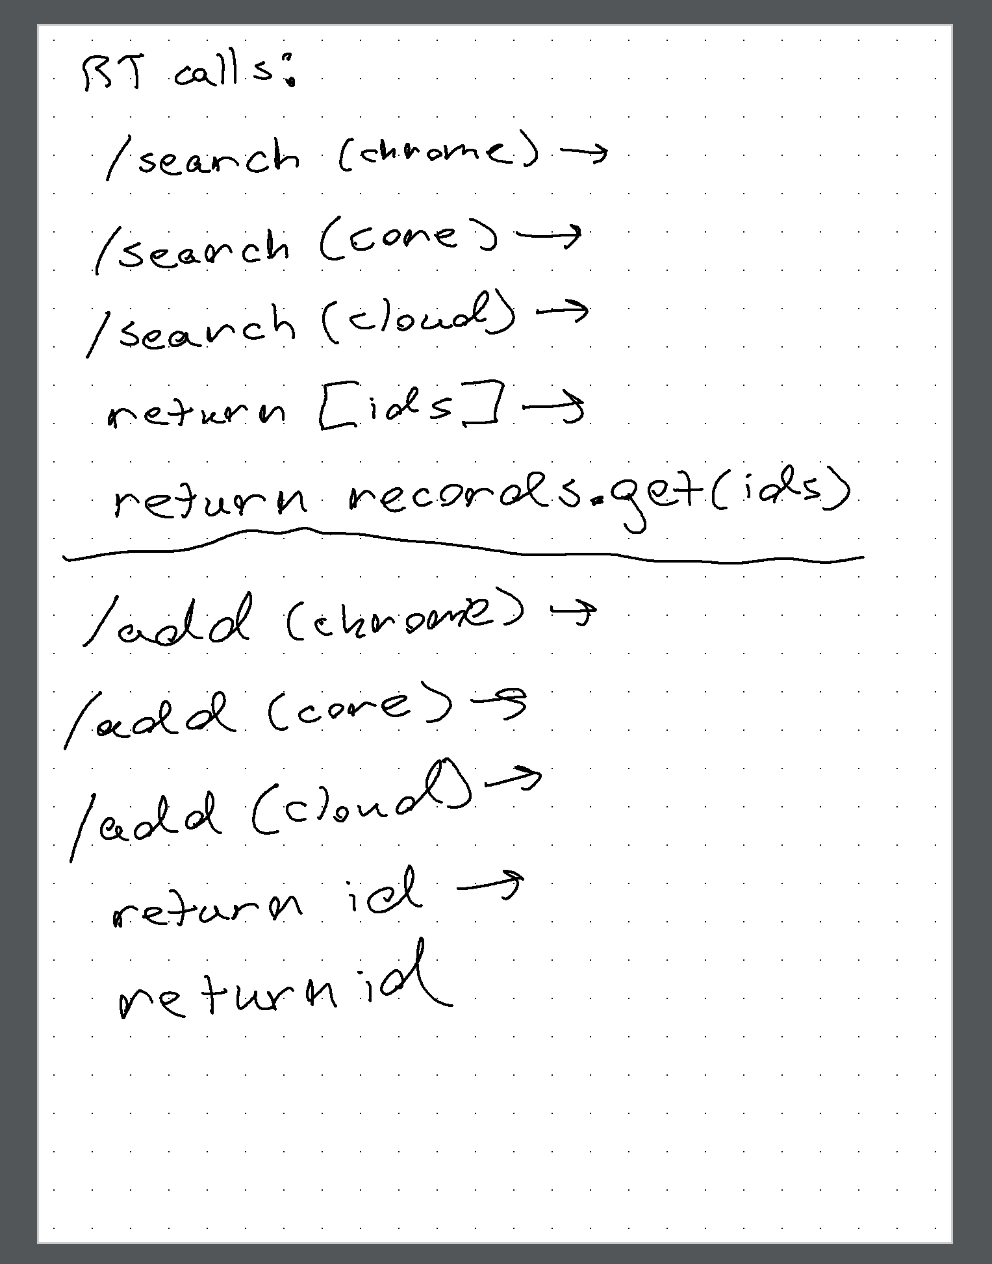 RT calls:
/search (chrome) →
/search (core) →
/search (cloud) →
return [ids] →
return records.get(ids)
/add (chrome) →
/add (core) →
/add (cloud) →
return id →
return id